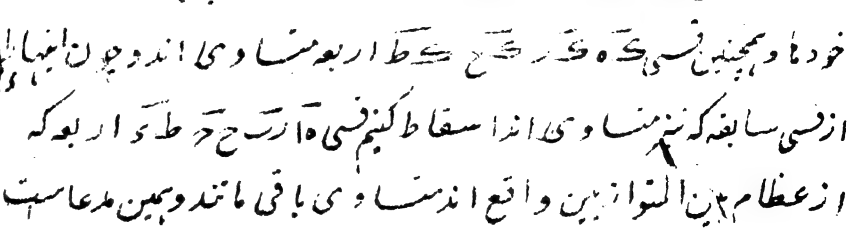 خودها و همچنین قسی که کر کح کط اربعه متساوی اند و چون اینها را
از قسی سابقه که نیز متساوی اند اسقاط کنیم قسی ه‍ا رب ح‍ج ط‍ء اربعه که
از عظام بین المتوازیین واقع اند متساوی باقی مانند و همین مدعاست